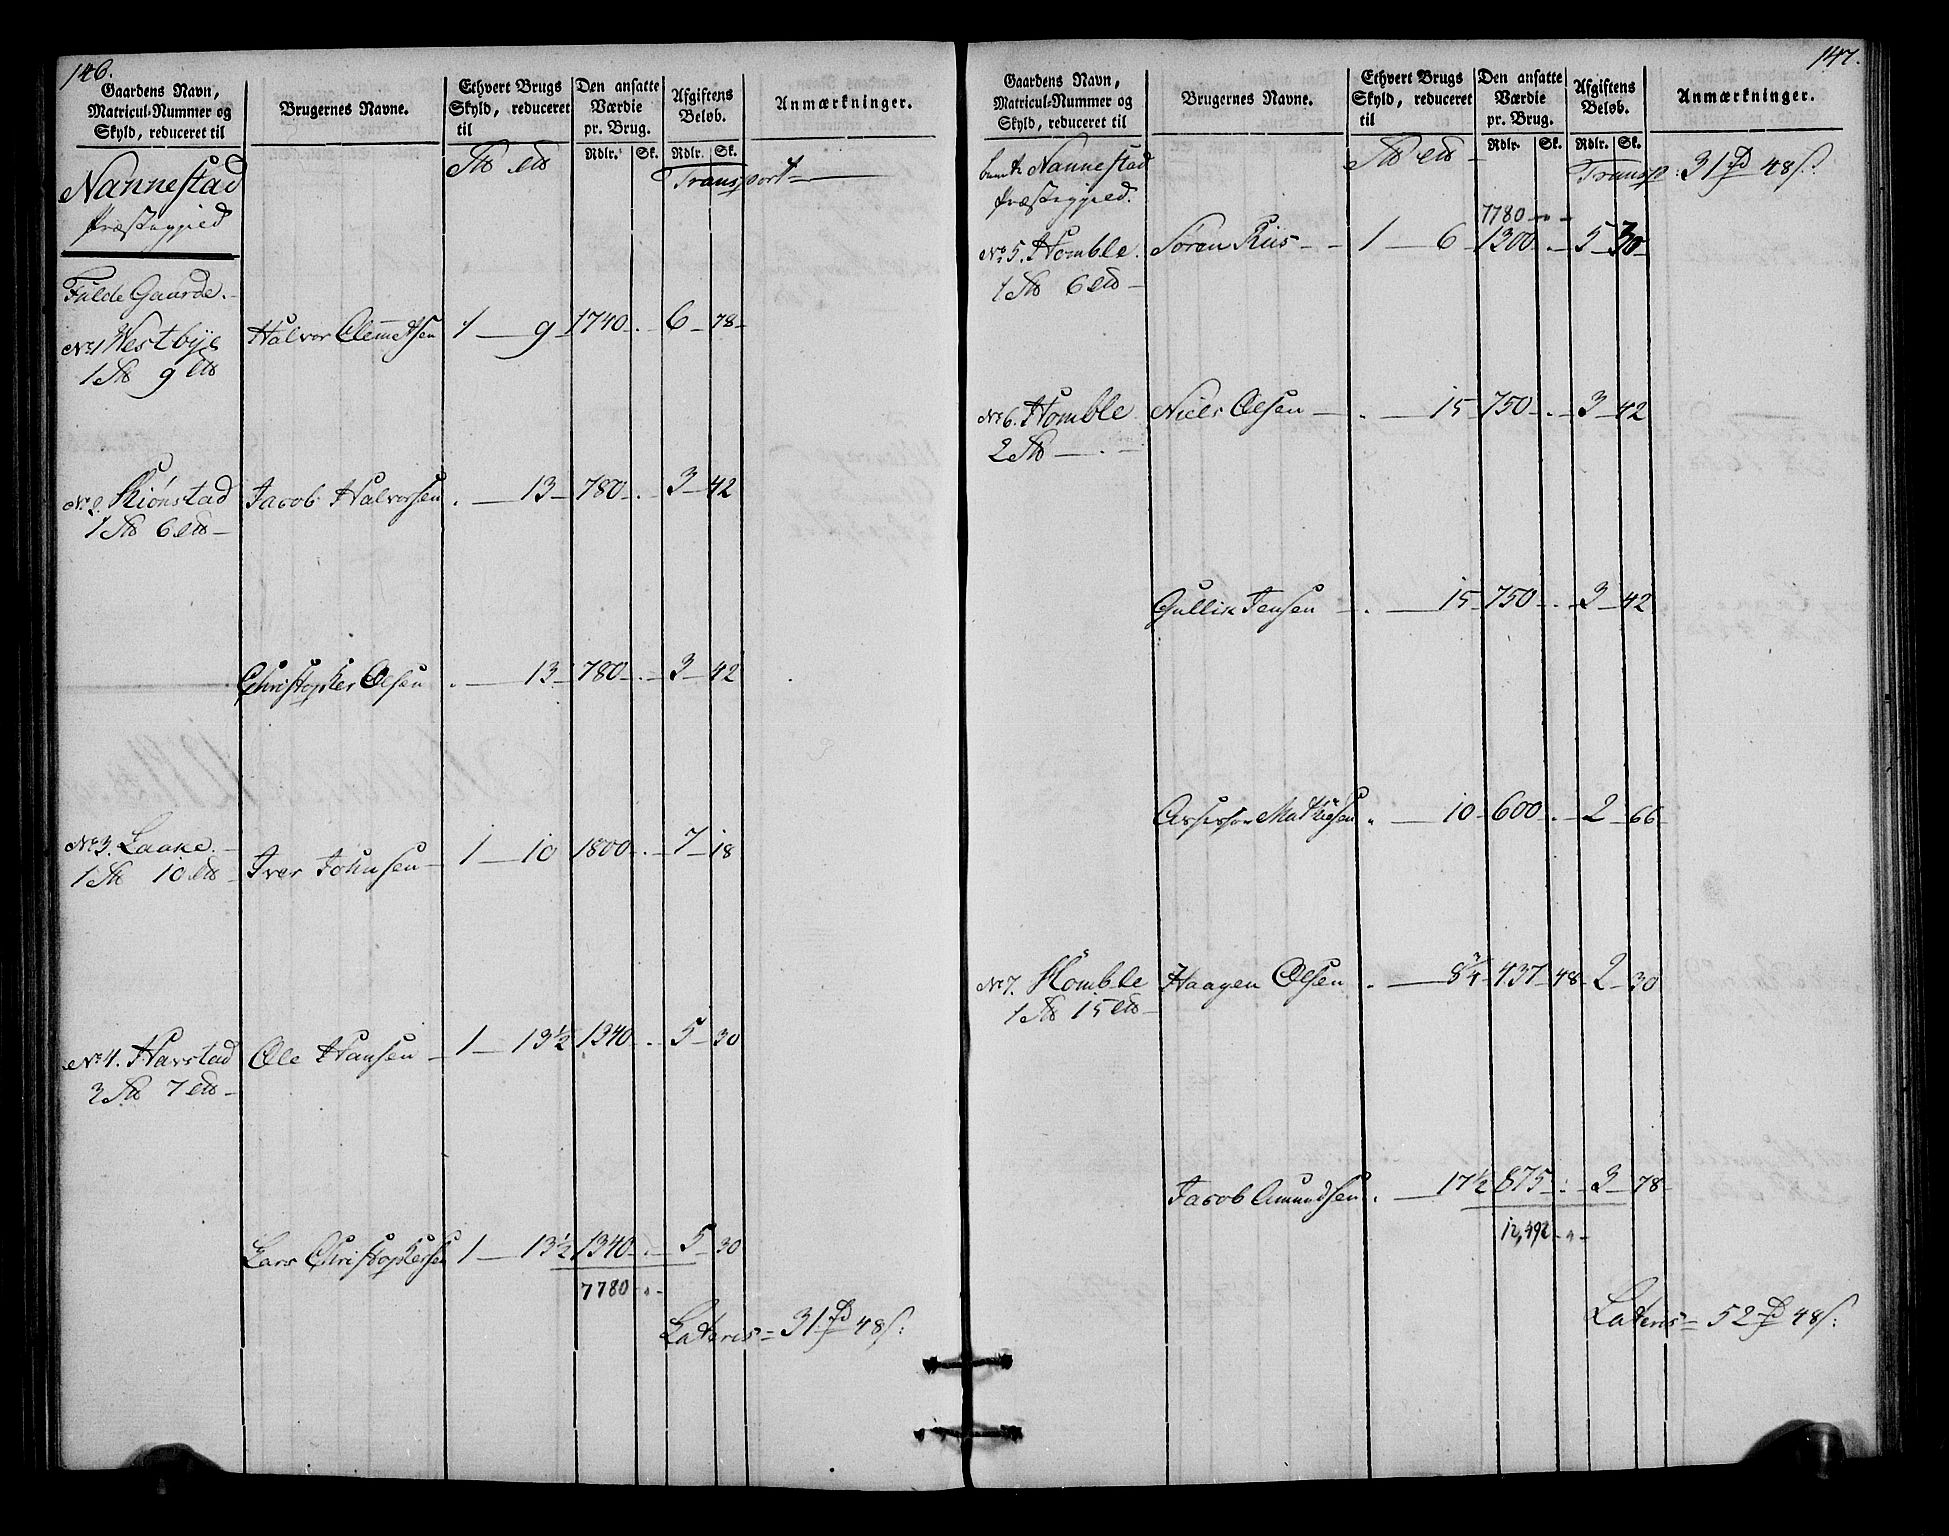 146.
Gaardens Navn, Matricul-Nummer og Skyld, reduceret til
Brugernes Navne.
Ethvert Brugs Skyld, reduceret til
Den ansatte Værdie pr. Brug.
Afgiftens Beløb.
Anmærkninger.
Rdlr. Sk. Rdlr. Sk.
Transport
Nannestad
Præstegield
Fulde Gaarde.
No 1 Westbye Halvor Clemmetsen 1 — 9 1740 . 6 78
1 9
No 2. Skiønstad Jacob Halvorsen . — 13 780 . 3 42
1 6
Christopher Olsen . — 13 780 . 3 42
No 3. Laake. Iver Johnsen 1 — 10 1800 . 7 18
1 10
No 4. Harstad Ole Hansen 1 — 13½ 1340 . 5 30
3 7
Lars Christophersen 1 — 13½ 1340 . 5 30
7780
Lateris = 31 48
147.
Gaardens Navn, Matricul-Nummer og Skyld, reduceret til
Brugernes Navne.
Ethvert Brugs Skyld, reduceret til
Den ansatte Værdie pr. Brug.
Afgiftens Beløb.
Anmærkninger.
Rdlr. Sk. Rdlr. Sk.
Transp : 31 48
Nannestad
Præstegield.
7780
No 5. Homble. Søren Riis 1 — 6 1300 . 5 30
1 6
No 6. Homble Niels Olsen . — 15 750 . 3 42
2
Gullik Jensen . — 15 750 . 3 42
Assessor Mathiesen . — 10 600 . 2 66
No 7. Homble Haagen Olsen . — 8¾ 437 48 2 30
1 15
Jacob Amundsen . — 17½ 875 . 3 78
12,492
Lateris = 52 48